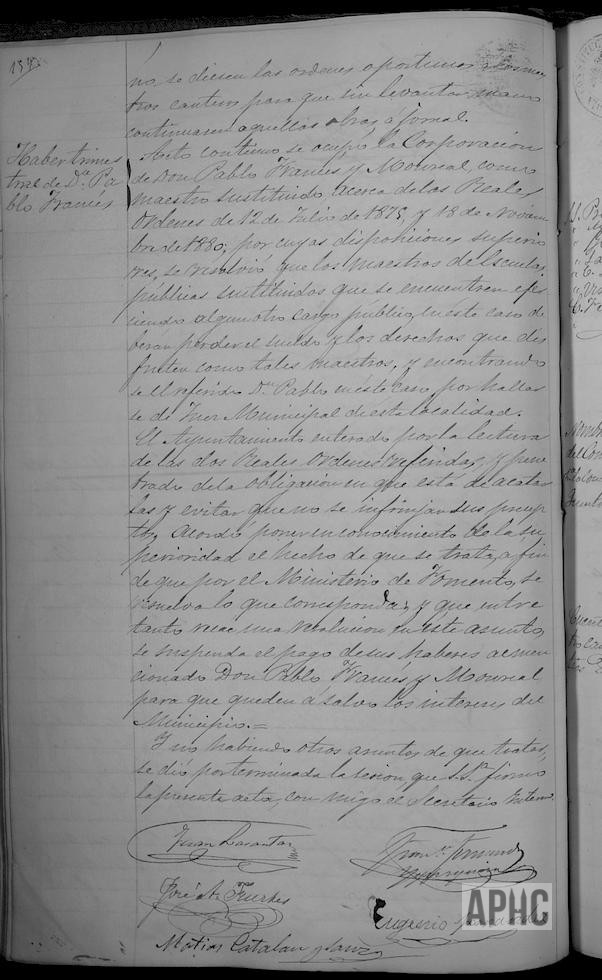 no, se diesen las ordenes oportunas
tros canteros para que sin levantar mano
continuasen aquellas obras a jornal.
Haber trimes
tral de Dn. Pa
blo Francés
Acto continuo se ocupó la Corporación
de Don Pablo Francés y Monreal, como
maestro sustituido, acerca de las Reales
Ordenes de 12 de Julio de 1875, y 18 de Noviem
bre de 1880; por cuyas disposiciones superio
res, se resolvió que los maestros de Escuelas
públicas sustituidos que se encuentren ejer
ciendo algun otro cargo público, en este caso de
beran perder el sueldo y los derechos que dis
fruten como tales maestros, y encontrando
se el referido Dn. Pablo en éste caso, por hallar
se de Juez Municipal de esta localidad.
El Ayuntamiento enterado por la lectura
de las dos Reales Ordenes referidas, y pene
trado de la obligacion en que está de acatar
las y evitar que no se infrinjan sus precep
tos, Acordó poner en conocimiento de la su
perioridad el hecho de que se trata, a fin
de que por el Ministerio de Fomento, se
resuelva lo que corresponda; y que entre
tanto recae una resolucion en este asunto,
se suspenda el pago de sus haberes al men
cionado Don Pablo Francés y Monreal
para que queden a salvo los intereses del
Municipio.=
Y no habiendo otros asuntos de que tratar,
se dió por terminada la sesion, que S.S.ª firmó
la presente acta, con migo el Secretario Interino.
Juan Lacantar
José A. Fuertes
Eugenio
Matias Catalan y Sanz
APHC